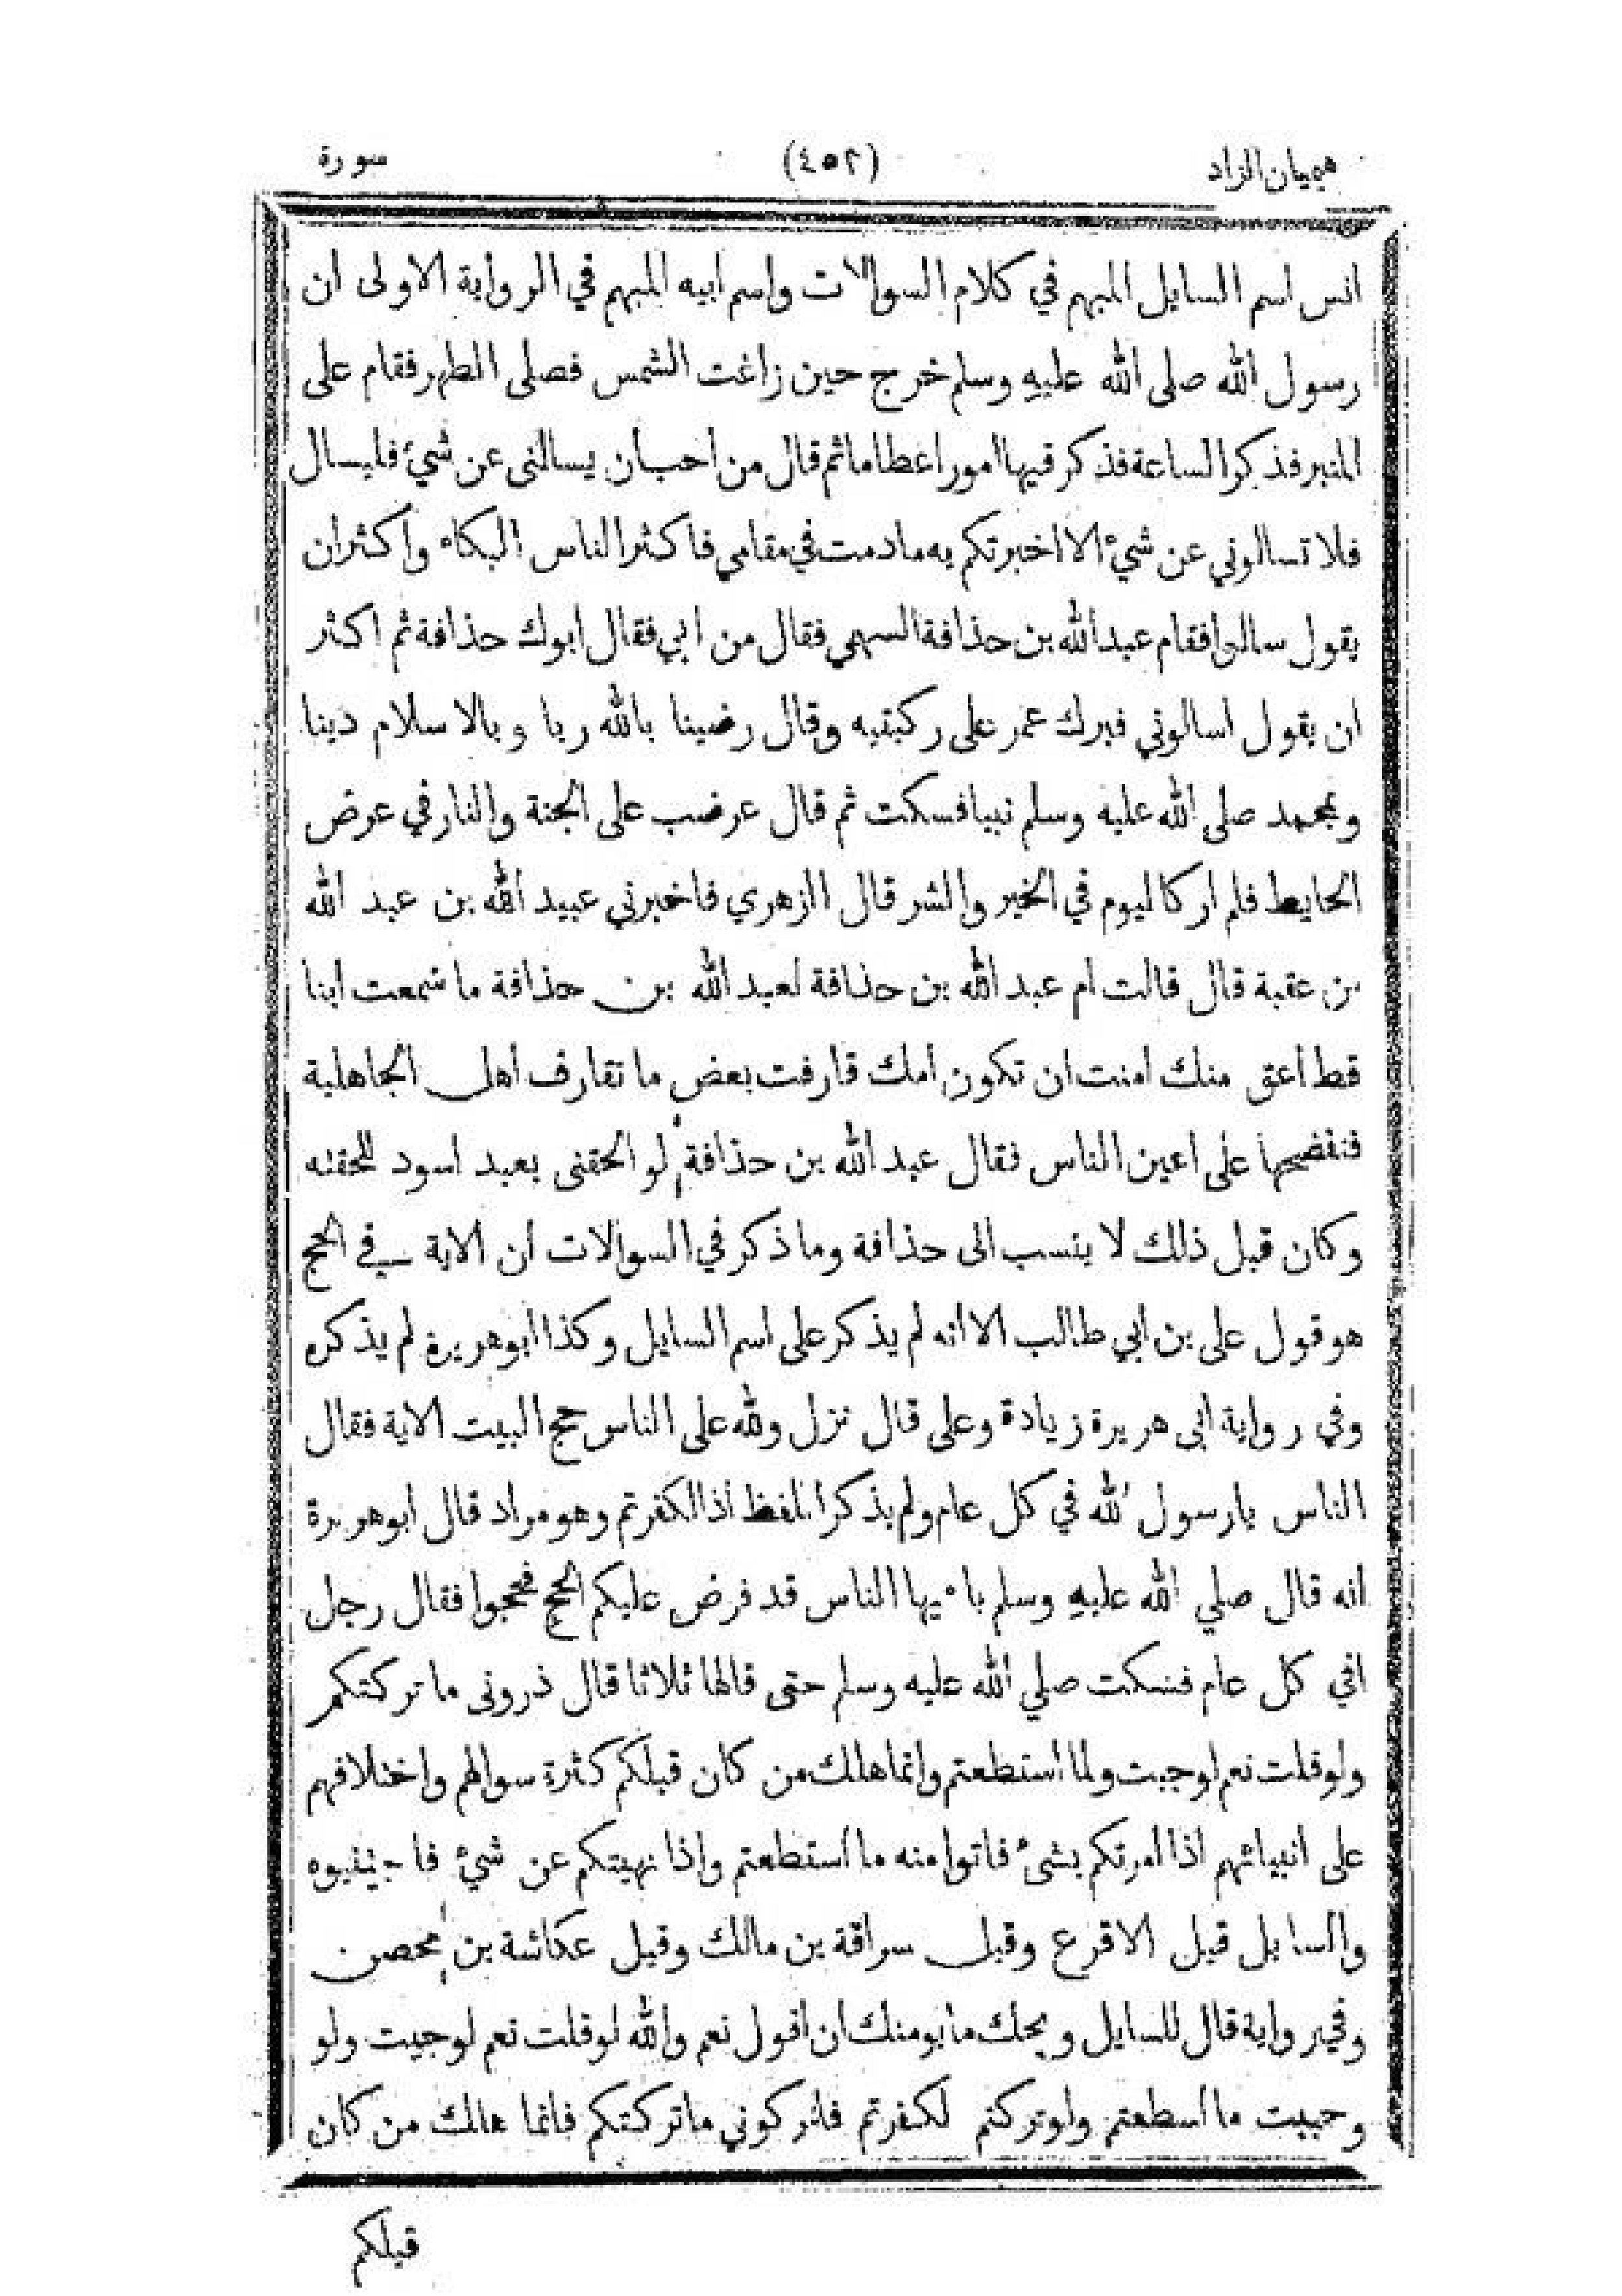 هميان الزاد (٤٥٢) سورة
انس اسم السايل المبهم في كلام السوالات واسم ابيه المبهم في الرواية الاولى ان
رسول الله صلى الله عليه وسلم خرج حين زاغت الشمس فصلى الظهر فقام على
المنبر فذكر الساعة فذكر فيها امورا عظاما ثم قال من احب ان يسالنى عن شيء فليسال
فلا تسالوني عن شيء الا اخبرتكم به مادمت في مقامي فاكثر الناس البكاء واكثر ان
يقول سالوا فقام عبد الله بن حذافة السهمي فقال من ابي فقال ابوك حذافة ثم اكثر
ان يقول اسالوني فبرك عمر على ركبتيه وقال رضينا بالله ربا وبالاسلام دينا
وبمحمد صلى الله عليه وسلم نبيا فسكت ثم قال عرضب على الجنة والنار في عرض
الحايط فلم ار كاليوم في الخير والشر قال الزهري فاخبرني عبيد الله بن عبد الله
بن عقبة قال قالت ام عبد الله بن حذافة لعبد الله بن حذافة ما سمعت ابنا
قط اعق منك امنت ان تكون امك قارفت بعض ما تقارف اهل الجاهلية
فنفضحها على اعين الناس فقال عبد الله بن حذافة لو الحقنى بعبد اسود للحقته
وكان قبل ذلك لا ينسب الى حذافة وما ذكر في السوالات ان الاية في الحج
هو قول على بن ابي طالب الا انه لم يذكر على اسم السايل وكذا ابوهريرة لم يذكره
وفي رواية ابى هريرة زيادة وعلى قال نزل ولله على الناس حج البيت الاية فقال
الناس يارسول الله في كل عام ولم يذكرا لفظ اذا لكفرتم وهو مراد قال ابوهريرة
انه قال صلي الله عليه وسلم يا ءيها الناس قد فرض عليكم الحج فحجوا فقال رجل
افي كل عام فسكت صلي الله عليه وسلم حتى قالها ثلاثا قال ذرونى ما تركتكم
ولو قلت نعم لوجبت ولما استطعتم وانما هلك من كان قبلكم كثرة سوالهم واختلافهم
على انبيائهم اذا امرتكم بشىء فاتوا منه ما استطعتم واذا نهيتكم عن شيء فاجتنبوه
والسايل قيل الاقرع وقيل سراقة بن مالك وقيل عكاشة بن محصن
وفي رواية قال للسايل ويحك ما يومنك ان اقول نعم والله لو قلت نعم لوجبت ولو
وجبت ما اسطعتم ولو تركتم لكفرتم فاتركوني ما تركتكم فانما هالك من كان
قبلكم